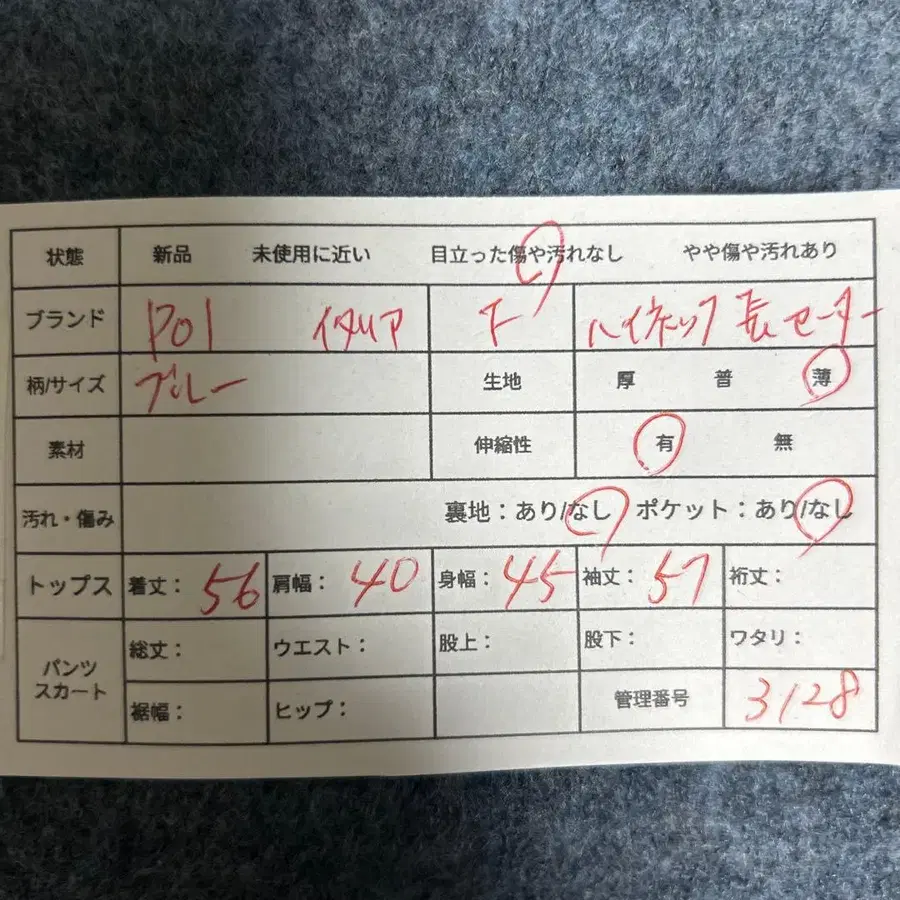 状態 新品 未使用に近い 目立った傷や汚れなし やや傷や汚れあり
ブランド POl イタリア F ハイネック 長 セーター
柄/サイズ ブルー 生地 厚 普 薄
素材 伸縮性 有 無
汚れ・傷み 裏地:あり/なし ポケット:あり/なし
トップス 着丈: 56 肩幅: 40 身幅: 45 袖丈: 57 裄丈:
パンツ スカート 総丈: ウエスト: 股上: 股下: ワタリ:
裾幅: ヒップ: 管理番号 3128